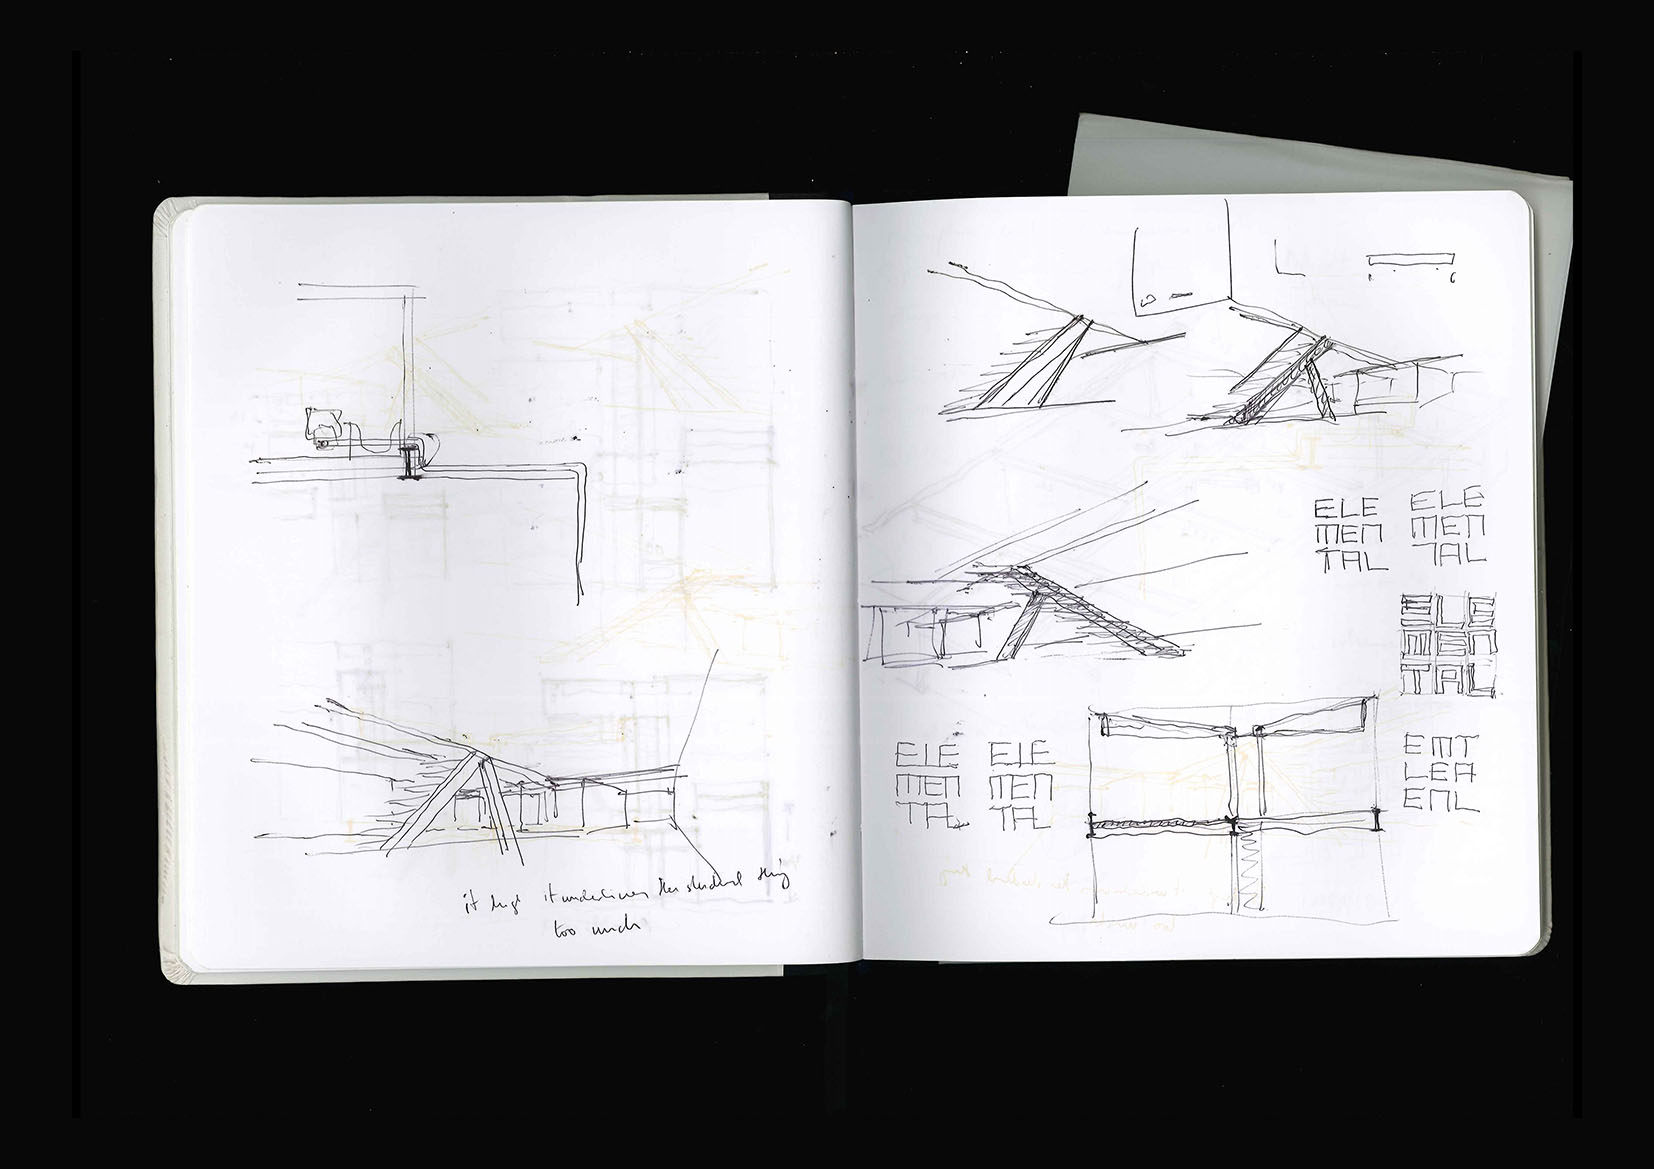 it it underlines the thing
too much
ELE
MEN
TAL
ELE
MEN
TAL
ELE
MEN
TAL
ELE
MEN
TAL
ELE
MEN
TAL
EMT
LEA
ENL